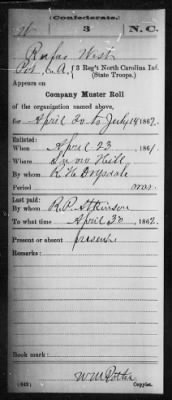 Confederate.
3 N.C.
Rufus West
Pvt, Co. A, 3 Reg't North Carolina Inf.
(State Troops.)
Appears on
Company Muster Roll
of the organization named above,
for April 30 to July 14 1862.
Enlisted:
When April 23 1861.
Where
By whom
Period war.
Last paid:
By whom R. P. Atkinson
To what time April 30 1862.
Present or absent present
Remarks:
Book mark:
(642) Copyist.